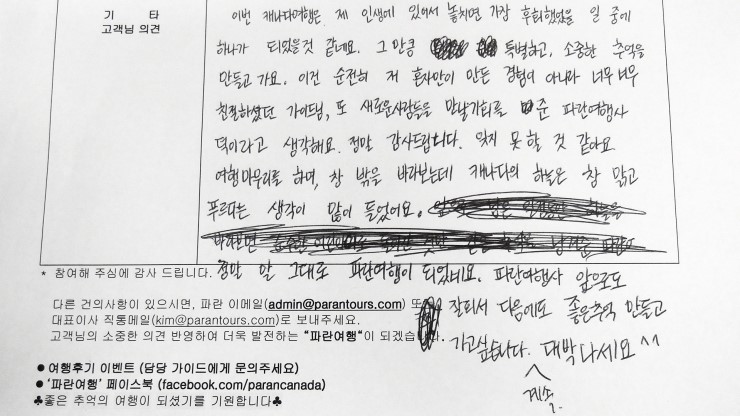 기 타
고객님 의견
이번 캐나다여행은 제 인생에 있어서 놓치면 가장 후회했었을 일 중에
하나가 되었을것 같네요. 그만큼 특별하고, 소중한 추억을
만들고 가요. 이건 순전히 저 혼자만이 만든 경험이 아니라 너무너무
친절하셨던 가이드님, 또 새로운사람들을 만날기회를 준 파란여행사
덕이라고 생각해요. 정말 감사드립니다. 잊지 못할 것 같아요
여행마무리를 하며, 창 밖을 바라보는데 캐나다의 하늘은 참 맑고
푸르다는 생각이 많이 들었어요.
* 참여해 주심에 감사 드립니다.
정말 말 그대로 파란여행이 되었네요. 파란여행사 앞으로도
잘되서 다음에도 좋은추억 만들고
가고싶습니다. 대박나세요 ^^
계속
다른 건의사항이 있으시면, 파란 이메일(admin@parantours.com) 또
대표이사 직통메일(kim@parantours.com)로 보내주세요.
고객님의 소중한 의견 반영하여 더욱 발전하는 "파란여행"이 되겠습니다.
● 여행후기 이벤트 (담당 가이드에게 문의주세요)
● '파란여행' 페이스북 (facebook.com/parancanada)
♣좋은 추억의 여행이 되셨기를 기원합니다♣